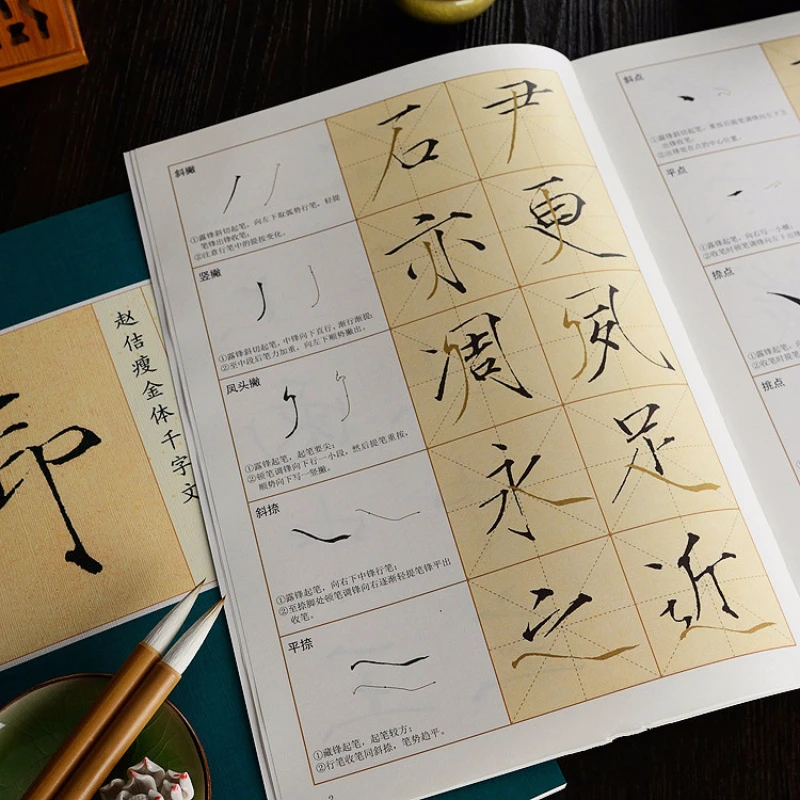 赵佶瘦金体千字文
斜撇
①露锋斜切起笔，向左下取弧势行笔，轻提
笔锋出锋收笔；
②注意行笔中的提按变化。
石 尹
竖撇
①露锋斜切起笔，中锋向下直行，渐行渐提；
②至中段后笔力加重，向左下顺势撇出。
亦 更
凤头撇
①露锋起笔，起笔要尖；
②顿笔调锋向下行一小段，然后提笔重按，
顺势向下写一竖撇。
凋 夙
斜捺
①露锋起笔，向右下中锋行笔；
②至捺脚处顿笔调锋向右逐渐轻提笔锋平出
收笔。
永 足
平捺
①藏锋起笔，起笔较方；
②行笔收笔同斜捺，笔势趋平。
之 近
2
斜点
①露锋斜切起笔，重按后提笔调锋向左下
出锋收笔。
平点
①露锋起笔，向右写一小横
②收笔时顿笔调锋向左下出锋
捺点
①露锋起笔
②收笔时提笔
挑点